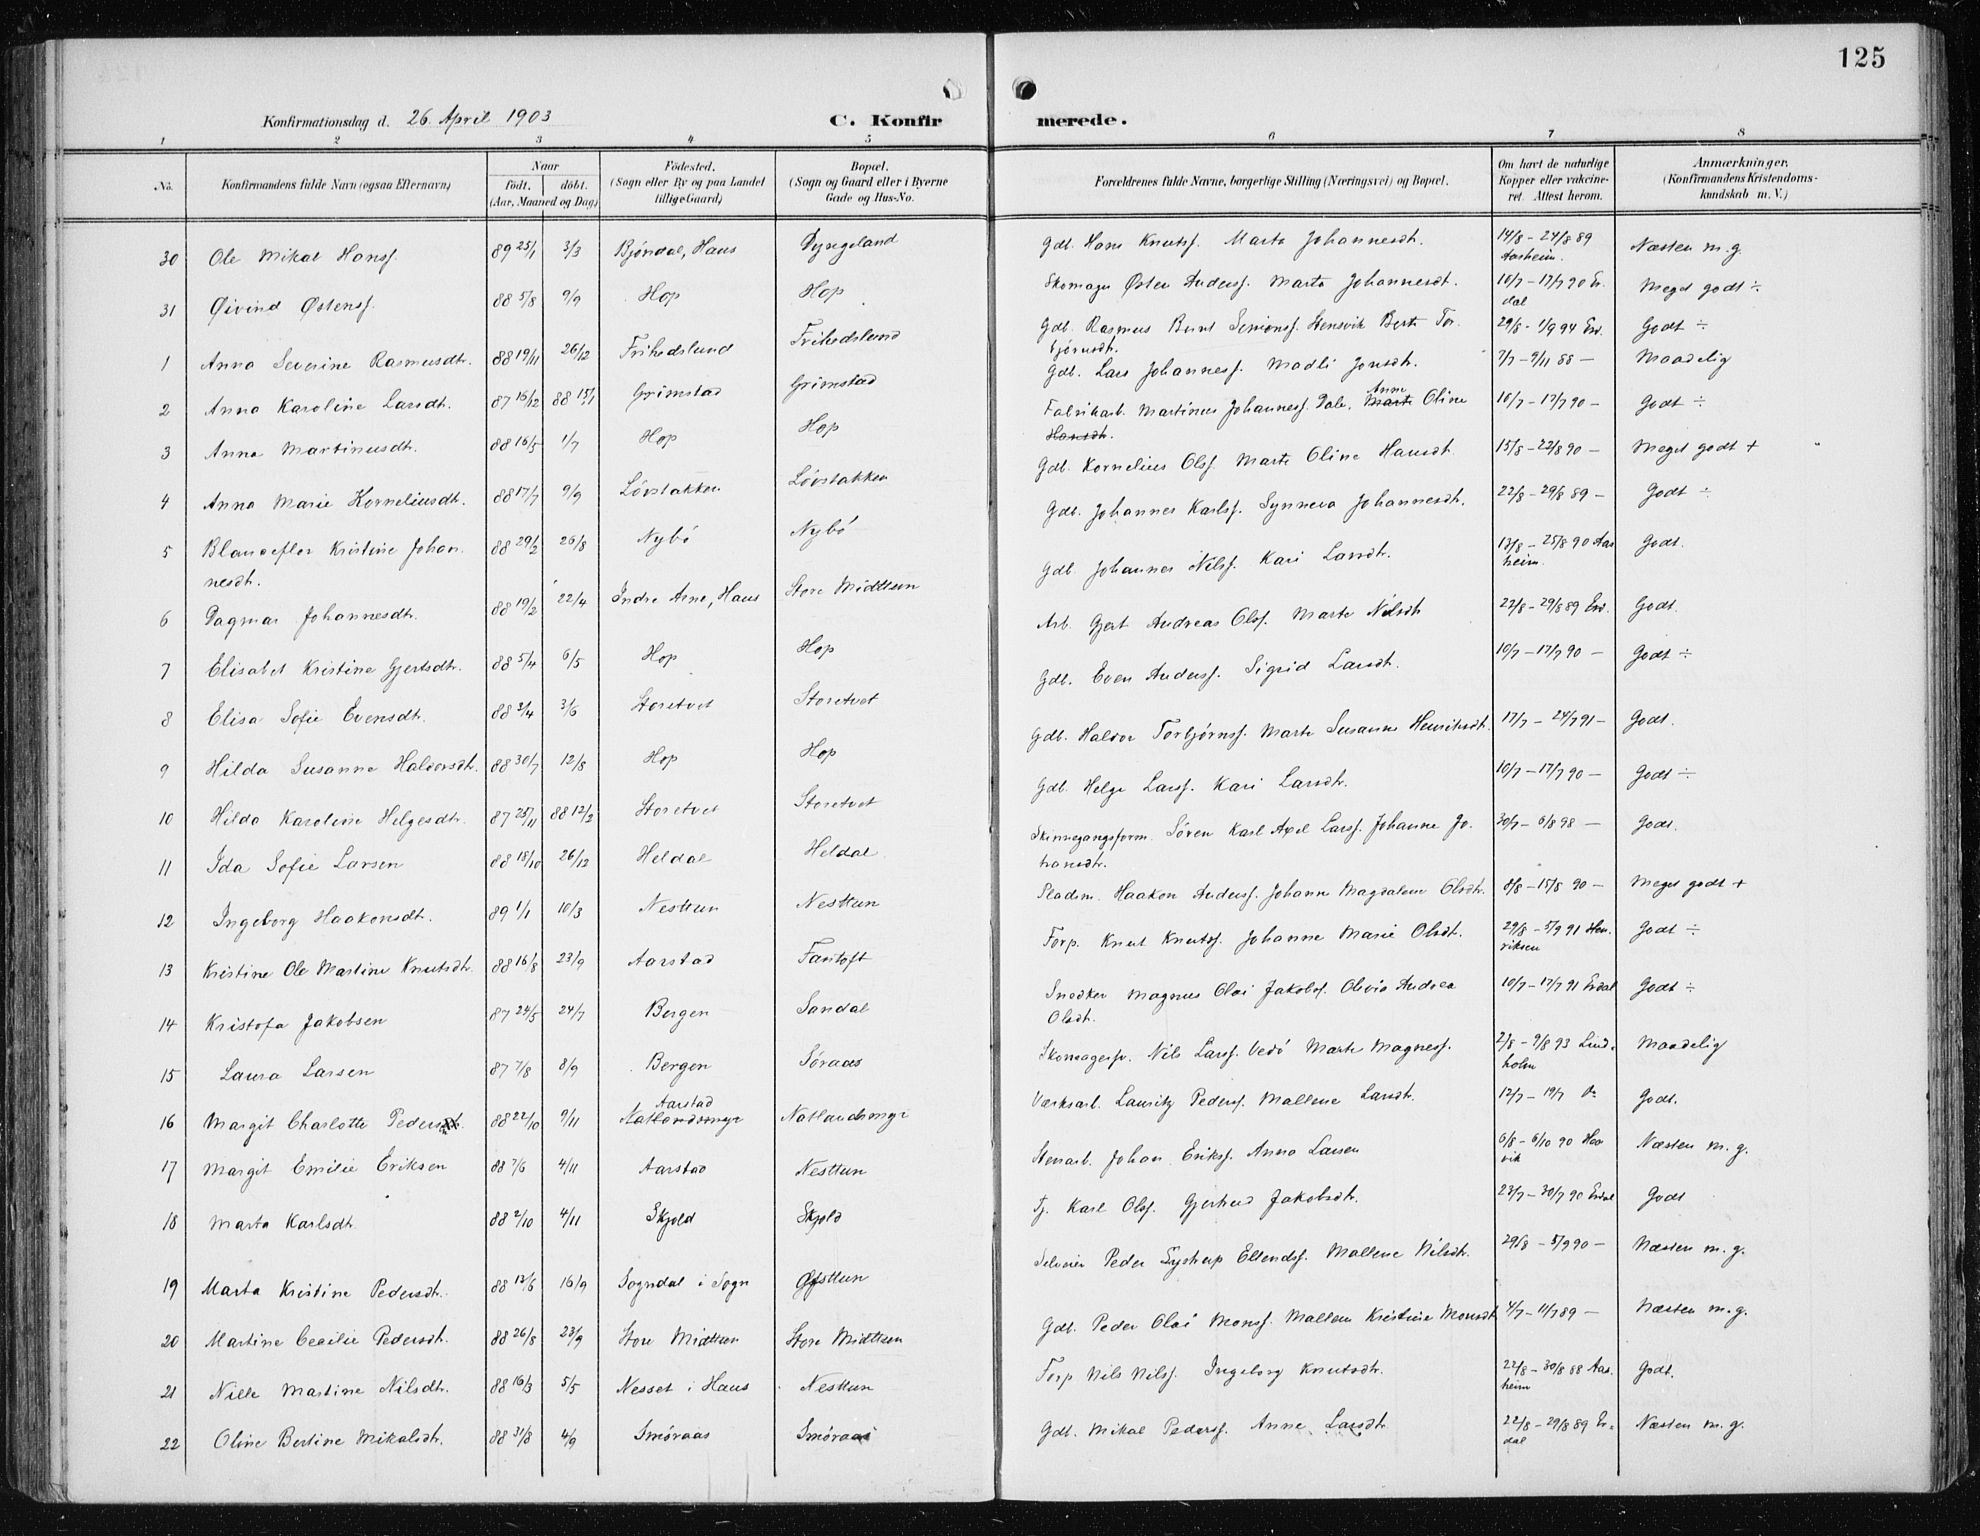 125
Konfirmationsdag d. 26. April 1903 C. Konfirmerede.
1 2 3 4 5 6 7 8
No. Konfirmandens fulde Navn (ogsaa Efternavn) Naar født. døbt. (Aar, Maaned og Dag) Födested. (Sogn eller By og paa Landet tillige Gaard) Bopæl. (Sogn og Gaard eller i Byerne Gade og Hus-No. Forældrenes fulde Navne, borgerlige Stilling (Næringsvei) og Bopæl. Om havt de naturlige Kopper eller vakcineret. Attest herom. Anmærkninger. (Konfirmandens Kristendomskundskab m. V.)
30 Ole Mikal Hansf. 89 25/1 3/3 Bjøndal, Haus Dyngeland Gdb. Hans Knutsf. Marta Johannesdt. 14/8 – 24/8 89 Aasheim. Næsten m. g.
31 Øivind Østensf. 88 5/8 9/9 Hop Hop Skomager Østen Andersf. Marta Johannesdt. 10/7 – 17/7 90 Erdal Meget godt ÷
1 Anna Severine Rasmusdtr. 88 19/11 26/12 Frihedslund Frihedslund Gdb. Rasmus Bernt Simonsf. Stensvik Berte Torbjørnsdt. 29/8 - 1/9 94 Erd. Godt ÷
2 Anna Karoline Larsdt. 87 16/12 88 15/1 Grimstad Grimstad Gdb. Lars Johannesf. Madli Jonsdt. 7/7 – 9/11 88 — Maadelig
3 Anna Martinusdt. 88 16/5 1/7 Hop Hop Fabrikarb. Martinus Johannesf. Dale, Marte Anne Oline Hansdt. 10/7 – 17/7 90 — Godt ÷
4 Anna Marie Korneliusdt. 88 17/7 9/9 Løvstakken Løvstakken Gdb. Kornelius Olsf. Marte Oline Hansdt. 15/8 – 22/8 90 — Meget godt +
5 Blanceflor Kristine Johannesdt. 88 29/2 26/8 Nybö Nybö Gdb. Johannes Karlsf. Synneva Johannesdt. 22/8 – 29/8 89 — Godt ÷
6 Dagmar Johannesdt. 88 19/2 22/4 Indre Arne, Haus Store Midttun Gdb. Johannes Nilsf. Kari Larsdt. 13/8 – 25/8 90 Aasheim. Godt.
7 Elisabet Kristine Gjertsdtr. 88 5/4 6/5 Hop Hop Arb. Gjert Andreas Olsf. Marte Nilsdt. 22/8 – 29/8 89 Erd. Godt.
8 Elisa Sofie Evensdt. 88 3/4 3/6 Storetvet Storetvet Gdb. Even Andersf. Sigrid Larsdt. 10/7 – 17/7 90 — Godt ÷
9 Hilda Susanne Haldorsdt. 88 30/7 12/8 Hop Hop Gdb. Haldor Torbjørnsf. Marte Susanne Henriksdt. 17/7 – 24/7 91 — Godt.
10 Hilda Karoline Helgesdtr. 87 25/11 88 12/2 Storetvet Storetvet Gdb. Helge Larsf. Kari Larsdt. 10/7 – 17/7 90 — Godt ÷
11 Ida Sofie Larsen 88 18/10 26/12 Heldal Heldal Skinnegangsform. Søren Karl Axel Larsf. Johanne Johansdt. 30/7 – 6/8 98 — Godt.
12 Ingeborg Haakonsdt. 89 1/1 10/3 Nesttun Nesttun Pladsm. Haakon Andersf. Johanne Magdalene Olsdt. 8/8 – 15/8 90 — Meget godt +
13 Kristine Ole Martine Knutsdt. 88 16/8 23/9 Aarstad Fantoft Forp. Knut Knutsf. Johanne Marie Olsdt. 29/8 – 5/9 91 Henriksen Godt ÷
14 Kristofa Jakobsen 87 24/5 24/7 Bergen Sandal Snedker Magnus Olai Jakobsf. Olivia Andrea Olsdt. 10/7 – 17/7 91 Erdal Godt ÷
15 Laura Larsen 87 7/8 8/9 Bergen Søraas Skomagersv. Nils Larsf. Vedö Marte Magnesf. 2/8 – 9/8 93 Lindholm Maadelig
16 Margit Charlotte Pedersdt. 88 22/10 9/11 Aarstad Natlandsmyr Natlandsmyr Værksarb. Lauritz Pedersf. Mallene Larsdt. 12/7 – 19/7 Godt.
17 Margit Emilie Eriksen 88 7/6 4/11 Aarstad Nesttun Stenarb. Johan Eriksf. Anna Larsen 6/8 – 6/10 90 Haavik Næsten m. g.
18 Marta Karlsdt. 88 2/10 4/11 Skjold Skjold Tj. Karl Olsf. Gjertrud Jakobsdt. 23/7 – 30/7 90 Erdal Godt
19 Marta Kristine Pedersdt. 88 13/6 16/9 Sogndal i Sogn Østtun Peder Ellendsf. Mallene Nilsdt. 29/8 – 5/9 90 — Næsten m. g.
20 Martine Cecilie Pedersdt. 88 26/8 23/9 Store Midttun Store Midttun Gdb. Peder Olai Monsf. Mallene Kristine Monsdt. 4/7 – 11/7 89 — Næsten m. g.
21 Nille Martine Nilsdt. 88 16/3 5/5 Nesset i Haus Nesttun Forp Nils Nilsf. Ingeborg Knutsdt. 22/8 – 30/8 88 Aasheim Godt.
22 Oline Bertine Mikalsdt. 88 31/8 4/9 Smøraas Smøraas Gdb. Mikal Pedersf. Anne Larsdt. 22/8 – 29/8 89 Erdal Næsten m. g.